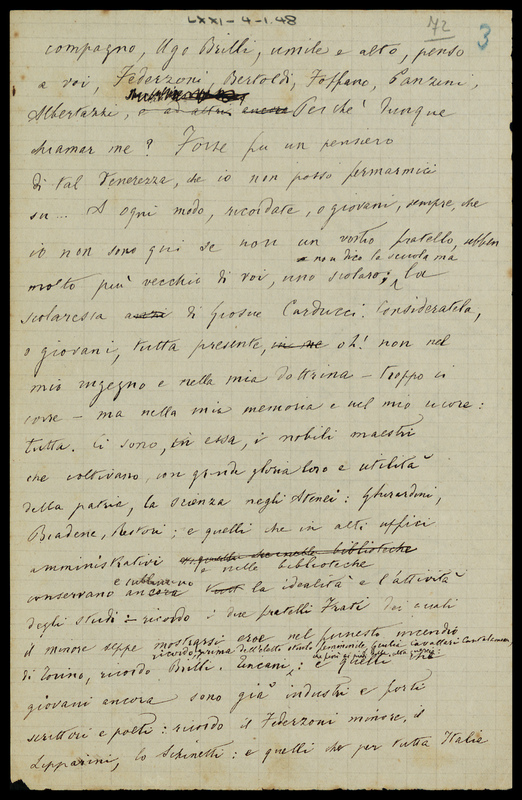 LXXI-4-1.48
72
3
compagno, Ugo Brilli, umile e alto, penso
a voi, Federzoni, Bertoldi, Toffano, Panzini,
Albertazzi, o ad altri ancora Perchè dunque
chiamar me? Forse fu un pensiero
di tal tenerezza, che io non posso fermarmici
su... A ogni modo, ricordate, o giovani, sempre, che
io non sono qui se non un vostro fratello, ebben
e non dico la scuola ma
molto più vecchio di voi, uno scolaro; la
scolaresca anzi di Giosue Carducci. Consideratela,
o giovani, tutta presente, in me oh! non nel
mio ingegno e nella mia dottrina - troppo ci
corre - ma nella mia memoria e nel mio cuore:
tutta. Ci sono, in essa, i nobili maestri
che coltivano, con grande gloria loro e utilità
della patria, la scienza negli Atenei: Gherardini,
Biadene, Restori; e quelli che in alti uffici
amministrativi e quelli che nelle biblioteche
o nelle biblioteche
conservano ancora la idealità e l'attività
degli studi: ricordo i due fratelli Frati dei quali
il minore seppe mostrarsi eroe nel funesto incendio
ricordo, prima dell'eletto stuolo femminile, Giulia Cavallari Cantalamessa,
di Torino, ricordo Brilli. Zencani,: e quelli che
giovani ancora sono già industri e forti
scrittori e poeti: ricordo il Federzoni minore, il
Lipparini, lo Schinetti: e quelli che per tutta Italia